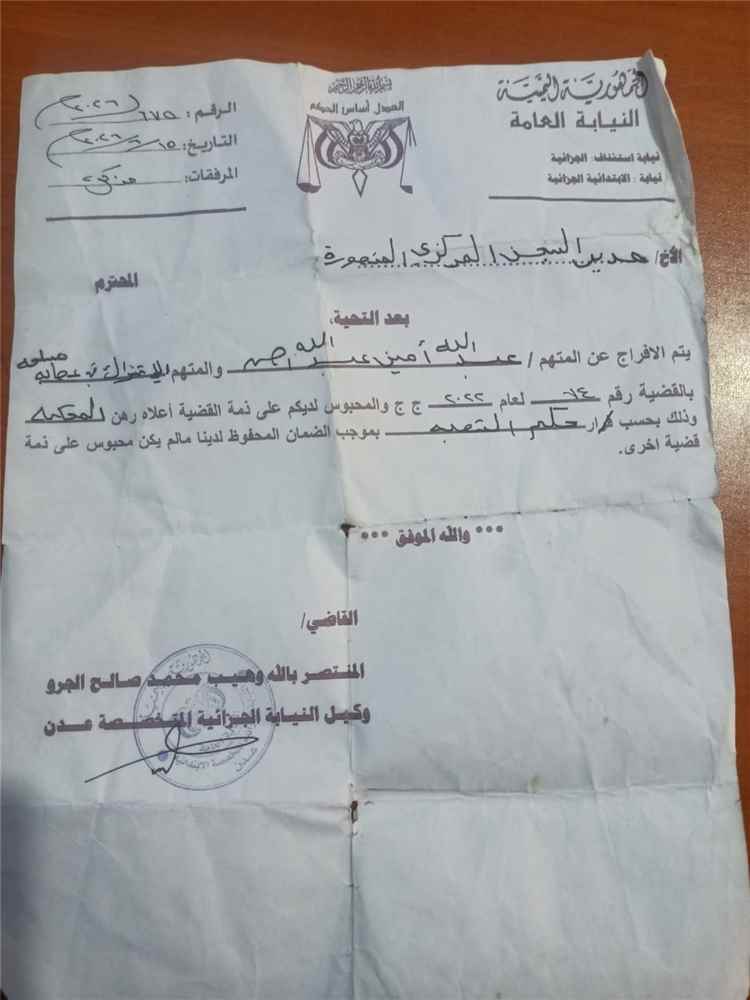 الجمهورية اليمنية
النيابة العامة
نيابة استئناف: الجزائية
نيابة: الابتدائية الجزائية
بسم الله الرحمن الرحيم
العدل أساس الحكم
الرقم: ٦٧٥ / ٢٠٢٦
التاريخ: ١٥/ ٦/ ٢٠٢٦
المرفقات:
الأخ/ مدير السجن المركزي المنصورة
المحترم
بعد التحية،
يتم الافراج عن المتهم / عبد الله أمين عبد الله والمتهم
بالقضية رقم ٦٤ لعام ٢٠٢٢ ج ج والمحبوس لديكم على ذمة القضية أعلاه رهن المحكمة
وذلك بحسب قرار حكم بموجب الضمان المحفوظ لدينا مالم يكن محبوس على ذمة
قضية اخرى.
*** والله الموفق ***
القاضي/
المنتصر بالله وهيب محمد صالح الجرو
وكيل النيابة الجزائية المتخصصة عدن